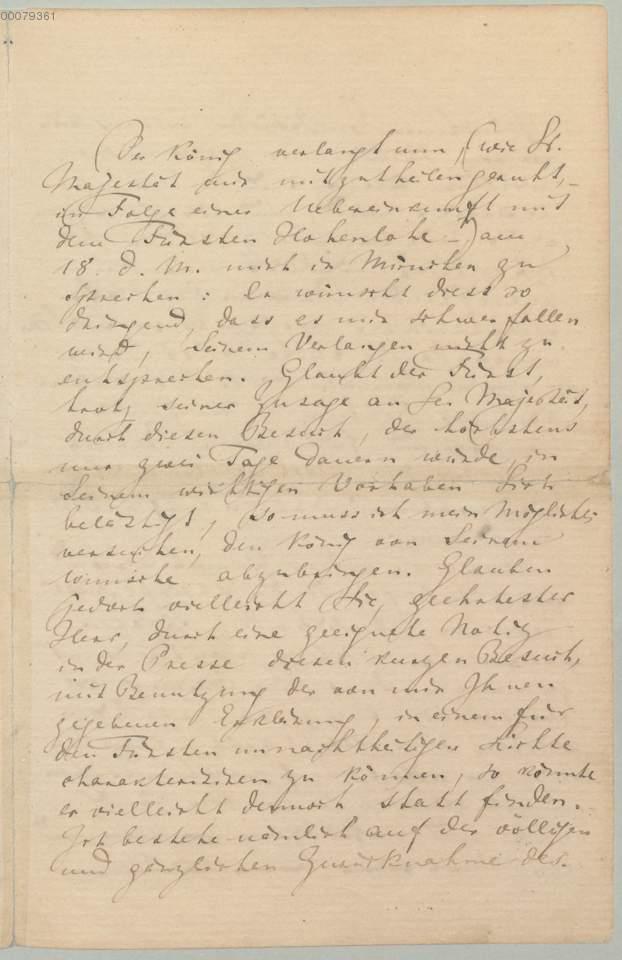 00079361
Der König verlangt nun, (wie Se.
Majestät mir mitzutheilen geruht, –
in Folge einer Uebereinkunft mit
dem Fürsten Hohenlohe –) am
18. d. M. mich in München zu
sprechen: Er wünscht diess so
dringend, dass es mir schwer fallen
wird, Seinem Verlangen nicht zu
entsprechen. Glaubt der Fürst,
trotz seiner Zusage an Se. Majestät,
durch diesen Besuch, der höchstens
nur zwei Tage dauern würde, in
Seinem wichtigen Vorhaben Sich
belästigt, so muss ich mein Möglichstes
versuchen, den König von Seinem
Wunsche abzubringen. Glauben
jedoch vielleicht Sie, geehrtester
Herr, durch eine geeignete Notiz
in der Presse diesen kurzen Besuch,
mit Benutzung der von mir Ihnen
gegebenen Erklärung, in einem für
den Fürsten unnachtheiligen Lichte
charakterisiren zu können, so könnte
er vielleicht dennoch statt finden.
Ich bestehe nämlich auf der völligen
und gänzlichen Zurücknahme der